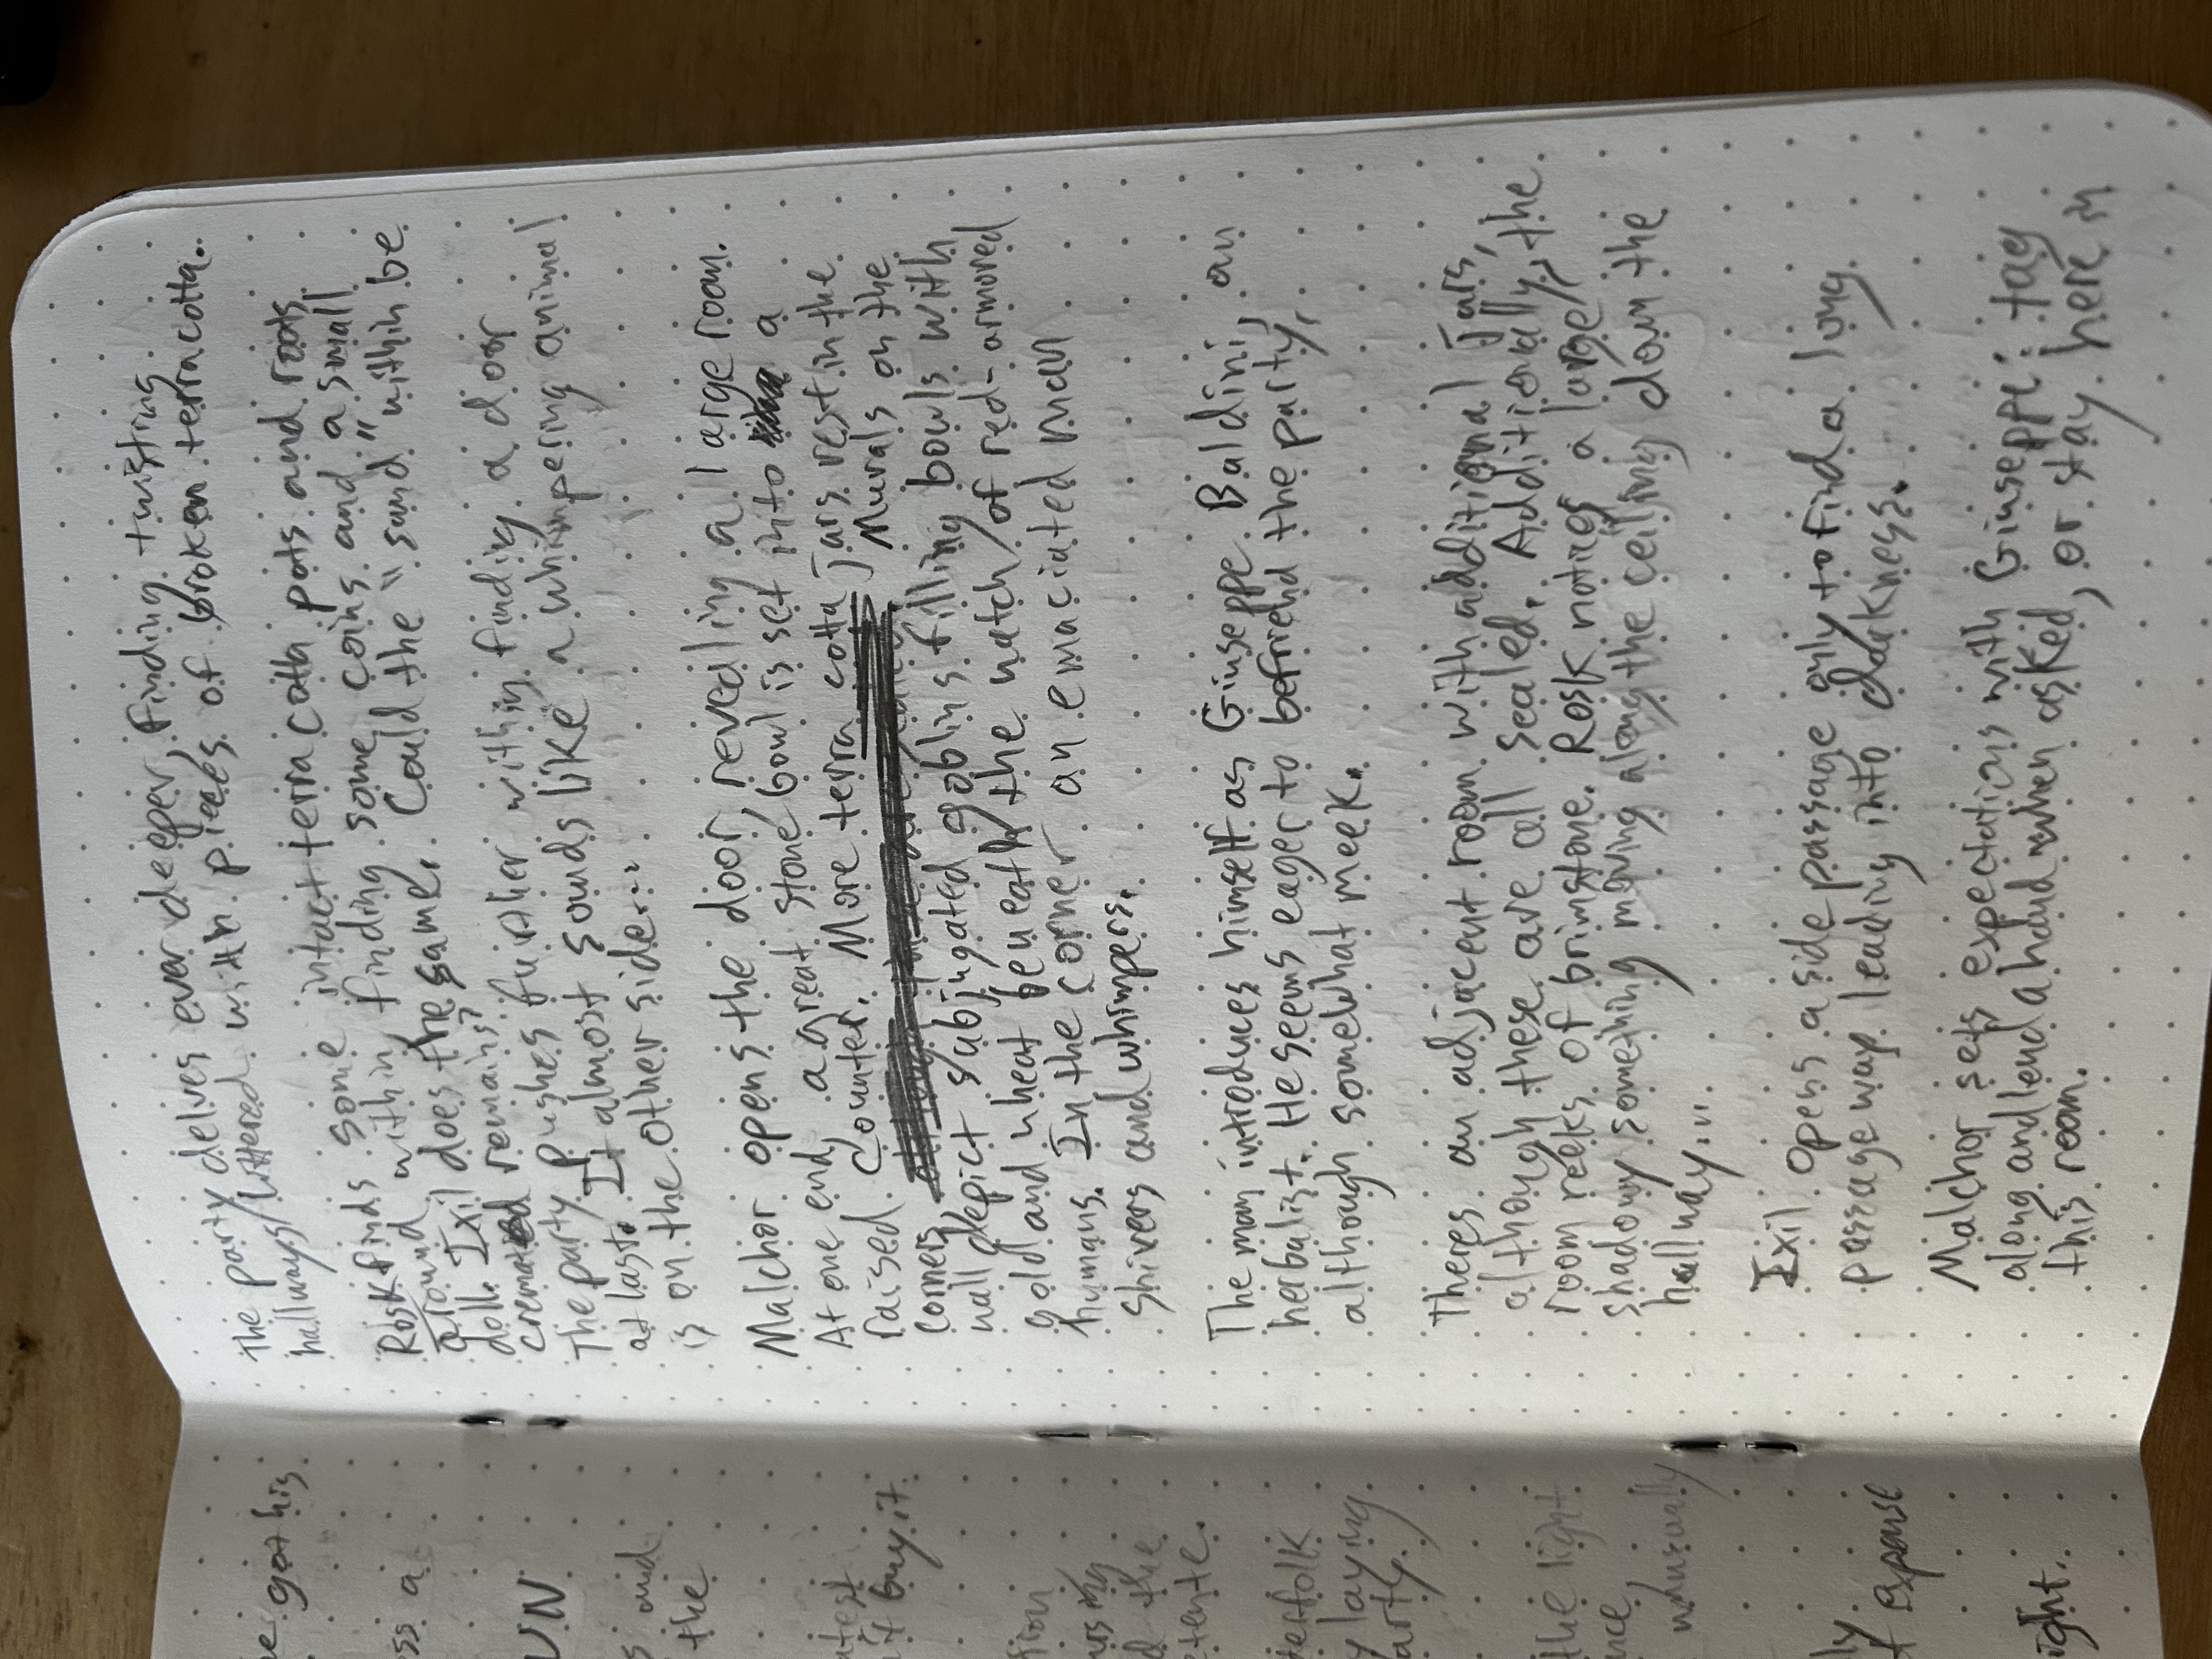 The party delves ever deeper, finding twisting
hallways littered with pieces of broken terracotta.
Rosk finds some intact terracotta pots and roots
around within finding some coins and a small
doll. Ixil does the same. Could the "sand" within be
cremated remains?
The party pushes further within finding a door
at last. It almost sounds like a whimpering animal
is on the other side...
Malchor opens the door, revealing a large room.
At one end, a great stone bowl is set into a
raised counter. More terra cotta Jars rest in the
corner, Murals on the
wall depict subjugated goblins filling bowls with
gold and wheat beneath the watch of red-armored
humans. In the corner an emaciated man
shivers and whimpers.
The man introduces himself as Ginseppe Baldini, an
herbalist. He seems eager to befriend the party,
although somewhat meek.
Theres an adjacent room with additional Jars,
although these are all sealed. Additionally, the
room reeks of brimstone. Rosk notices a large,
shadowy something moving along the ceiling down the
hallway...
Ixil opens a side passage only to find a long
passageway leading into darkness.
Malchor sets expectations with Ginseppe: tag
along and lend a hand when asked, or stay here in
this room.
got his
ss a
UN
and
the
buy it
the
tefolk
laying
arty.
the light
unusually
expanse
ight..